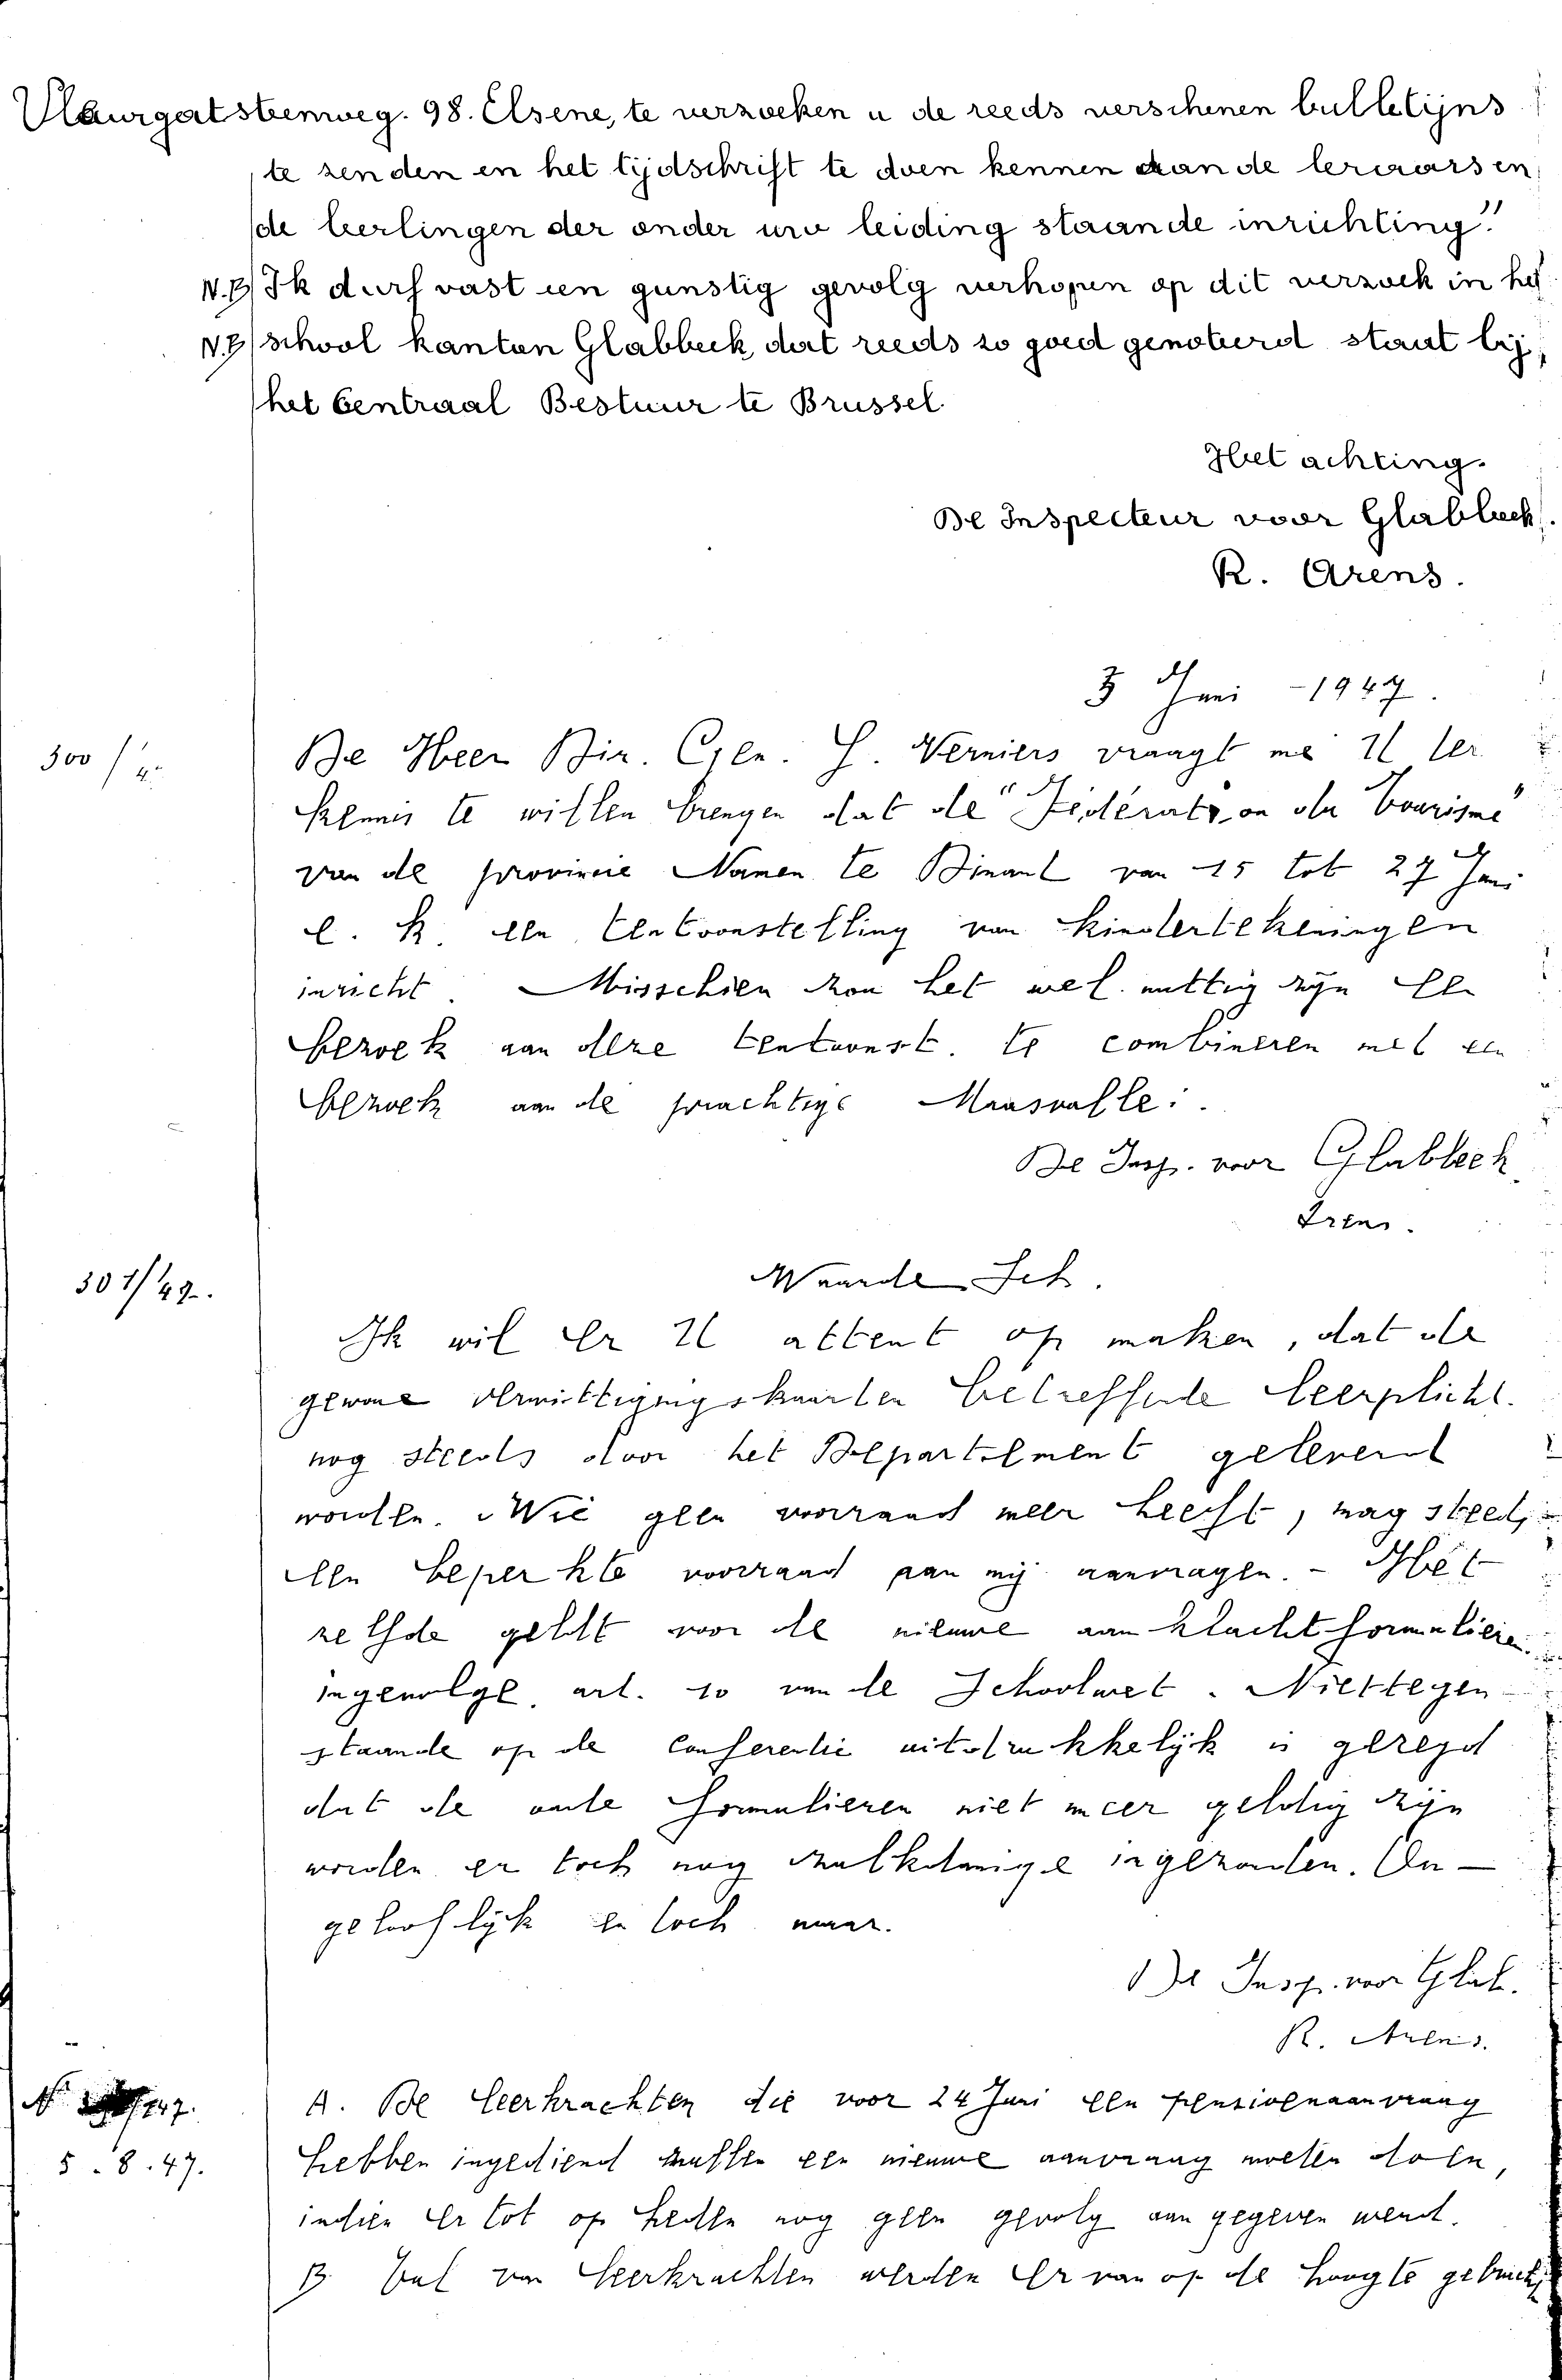 Vleurgatsteenweg. 98. Elsene, te verzoeken u de reeds verschenen bulletijns
te zenden en het tijdschrift te doen kennen aan de leraars en
de leerlingen der onder uw leiding staande inrichting."
N.B/ Ik durf vast een gunstig gevolg verhopen op dit verzoek in het
N.B/ school kanton Glabbeek, dat reeds zo goed genoteerd staat bij
het Centraal Bestuur te Brussel.
Met achting.
De Inspecteur voor Glabbeek.
R. Arens.
3 Juni - 1947.
300/4
De Heer Dir. Gen. H. Verniers vraagt me U ter
kennis te willen brengen dat de "Fédération du Tourisme"
van de provincie Namen te Dinant van 15 tot 27 Juni
e. k. een tentoonstelling van kindertekeningen
inricht. Misschien kon het wel nuttig zijn een
bezoek aan deze tentoonst. te combineren met een
bezoek aan de prachtige Maasvallei.
De Insp. voor Glabbeek
Arens.
301/47.
Waarde Sch.
Ik wil er U attent op maken, dat de
gewone verwittigingskaarten betreffende leerplicht
nog steeds door het Departement geleverd
worden. Wie geen voorraad meer heeft, mag steeds
een beperkte voorraad aan mij aanvragen. - Het
zelfde geldt voor de nieuwe aanklachtformulieren
ingevolge art. 10 van de Schoolwet. Niettegen-
staande op de conferentie uitdrukkelijk is gezegd
dat de oude formulieren niet meer geldig zijn
worden er toch nog dusdanige ingezonden. On-
gelooflijk en toch waar.
De Insp. voor Glab.
R. Arens.
No /47.
5.8.47.
A. De leerkrachten die voor 24 Juni een pensioenaanvraag
hebben ingediend zullen een nieuwe aanvraag moeten doen,
indien er tot op heden nog geen gevolg aan gegeven werd.
B. Tal van leerkrachten werden er van op de hoogte gebracht